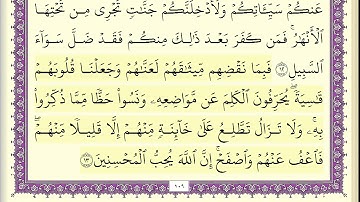 عَنكُمْ سَيِّـَٔاتِكُمْ وَلَأُدْخِلَنَّكُمْ جَنَّـٰتٍ تَجْرِى مِن تَحْتِهَا
ٱلْأَنْهَـٰرُ ۚ فَمَن كَفَرَ بَعْدَ ذَٰلِكَ مِنكُمْ فَقَدْ ضَلَّ سَوَآءَ
ٱلسَّبِيلِ ١٢ فَبِمَا نَقْضِهِم مِّيثَـٰقَهُمْ لَعَنَّـٰهُمْ وَجَعَلْنَا قُلُوبَهُمْ
قَـٰسِيَةً ۖ يُحَرِّفُونَ ٱلْكَلِمَ عَن مَّوَاضِعِهِۦ ۙ وَنَسُوا۟ حَظًّا مِّمَّا ذُكِّرُوا۟
بِهِۦ ۚ وَلَا تَزَالُ تَطَّلِعُ عَلَىٰ خَآئِنَةٍ مِّنْهُمْ إِلَّا قَلِيلًا مِّنْهُمْ ۖ
فَٱعْفُ عَنْهُمْ وَٱصْفَحْ ۚ إِنَّ ٱللَّهَ يُحِبُّ ٱلْمُحْسِنِينَ ١٣
١٠٩